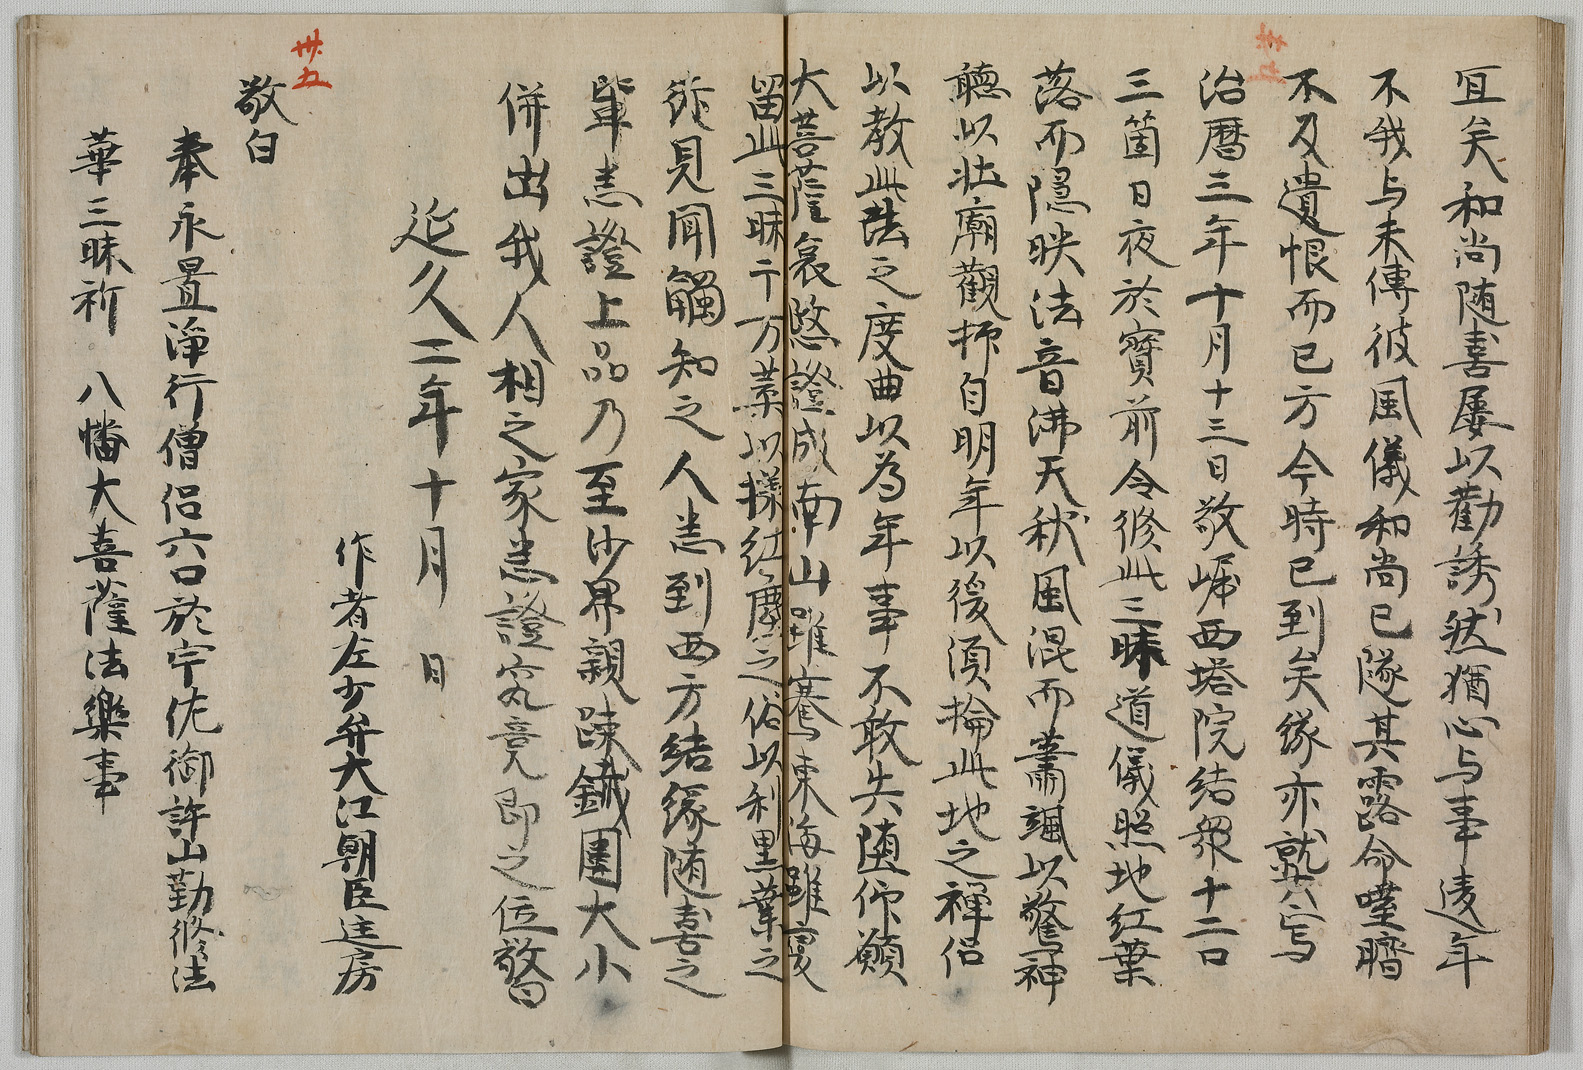 宜矣和尚随喜屢以勸誘然猶心与事違年
不我与未傳彼風儀和尚已隊其露命噬臍
不及遺恨而已方今時已到矣緣亦就矣
治暦三年十月十三日敬嘱西塔院結衆十二口
三箇日夜於寳前令修此三昧道儀照地紅葉
落而隱映法音沸天秋風混而蕭颯以驚神
聽以壯廟觀抑自明年以後須掄此地之禅侶
以教此法之度曲以為年事不敢失堕仰願
大菩薩哀愍證成南山雖騫東海雖変
留此三昧于万葉以擇紅塵之俗以利黒葉之
從見聞觸知之人悉到西方結緣随喜之
輩悉證上品乃至沙界親踈鐵圍大小
併出我人相之家悉證究竟即之位敬白
延久二年十月　日
作者左少弁大江朝臣匡房
卅五
敬白
奉永置淨行僧侶六口於宇佐御許山勤修法
華三昧祈八幡大菩薩法樂事